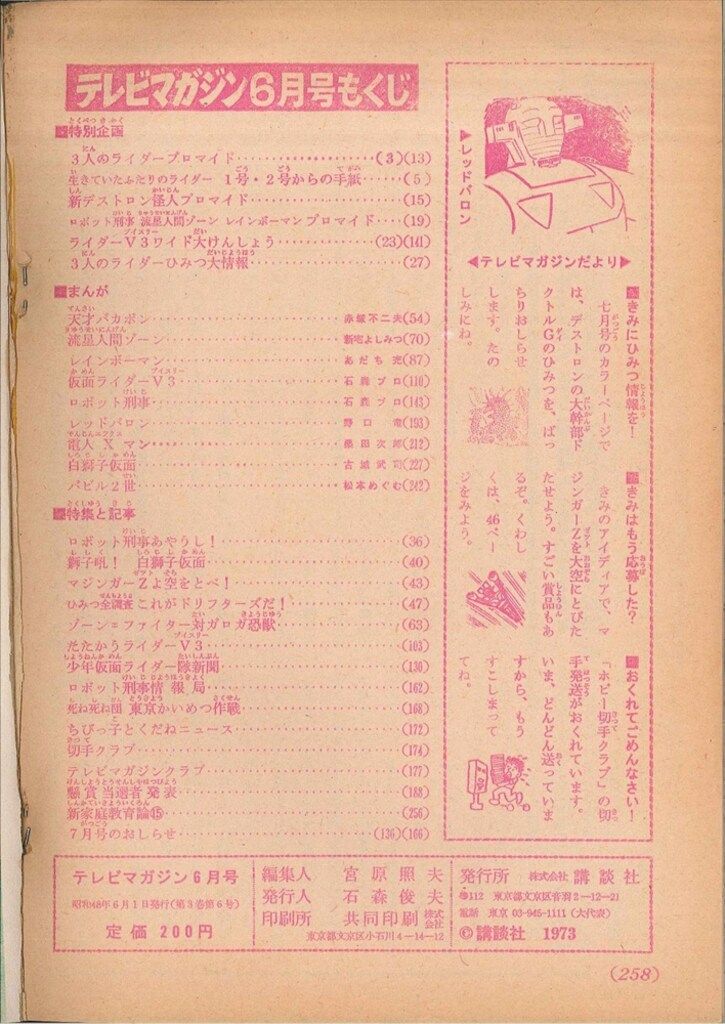 テレビマガジン6月号もくじ
■特別企画
3人のライダーブロマイド (3)(13)
生きていたふたりのライダー 1号・2号からの手紙 (5)
新デストロン怪人ブロマイド (15)
ロボット刑事 流星人間ゾーン レインボーマン ブロマイド (19)
ライダーV3ワイド大けんしょう (23)(141)
3人のライダーひみつ大情報 (27)
■まんが
天才バカボン 赤塚不二夫(54)
流星人間ゾーン 新宅よしみつ(70)
レインボーマン あだち充(87)
仮面ライダーV3 石森プロ(110)
ロボット刑事 石森プロ(143)
レッドバロン 野口竜(193)
電人Xマン 桑田次郎(212)
白獅子仮面 古城武司(227)
バビル2世 松本めぐむ(242)
■特集と記事
ロボット刑事あやうし! (36)
獅子吼! 白獅子仮面 (40)
マジンガーZよ空をとべ! (43)
ひみつ全調査 これがドリフターズだ! (47)
ゾーン=ファイター対ガロガ恐獣 (63)
たたかうライダーV3 (103)
少年仮面ライダー隊新聞 (130)
ロボット刑事情報局 (162)
死ね死ね団 東京かいめつ作戦 (168)
ちびっ子とくだねニュース (172)
切手クラブ (174)
テレビマガジンクラブ (177)
懸賞当選者発表 (188)
新家庭教育論⑮ (256)
7月号のおしらせ (136)(166)
▶レッドバロン
◀テレビマガジンだより▶
■きみにひみつ情報を!
七月号のカラーページで
は、デストロンの大幹部ド
クトルGのひみつを、ばっ
ちりおしらせ
します。たの
しみにね。
■きみはもう応募した?
きみのアイディアで、マ
ジンガーZを大空にとびた
たせよう。すごい賞品もあ
るぞ。くわし
くは、46ペー
ジをみよう。
■おくれてごめんなさい!
「ホビー切手クラブ」の切
手発送がおくれています。
いま、どんどん送っていま
すから、もう
すこしまって
てね。
テレビマガジン6月号
昭和48年6月1日発行(第3巻第6号)
定価 200円
編集人 宮原照夫
発行人 石森俊夫
印刷所 共同印刷株式会社
東京都文京区小石川4-14-12
発行所 株式会社 講談社
〠112 東京都文京区音羽2-12-21
電話 東京 03-945-1111(大代表)
©講談社 1973
(258)